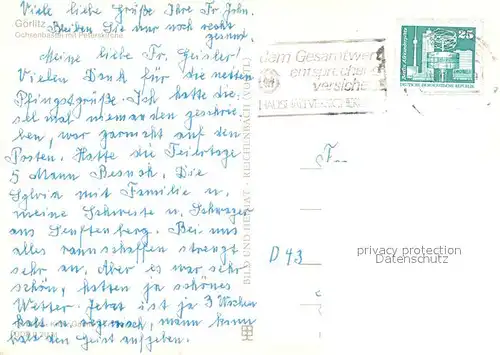 Viele liebe Grüße Ihre Fr. John.
Bleiben Sie nur noch recht
gesund.
Görlitz
Ochsenbastei mit Peterskirche
Meine liebe Fr. Geisler!
Vielen Dank für die netten
Pfingstgrüße. Ich hatte die-
sel mal niemanden geschrie-
ben, war garnicht auf den
Posten. Hatte die Feiertage
5 Mann Besuch. Die
Sylvia mit Familie u.
meine Schwester u. Schwager
aus Senftenberg. Bei uns
alles ranschaffen strengt
sehr an. Aber es war sehr
schön, hatten ja schönes
Wetter. Jetzt ist ja 3 Wochen
kalt u. regnerisch, mann kann
bald den Geist aufgeben.
BILD UND HEIMAT · REICHENBACH (VOGTL.)
dem Gesamtwert
entsprechend
versichern
HAUSHALTVERSICHERUNG
25
DEUTSCHE DEMOKRATISCHE REPUBLIK
F...
D 43
privacy protection
Datenschutz